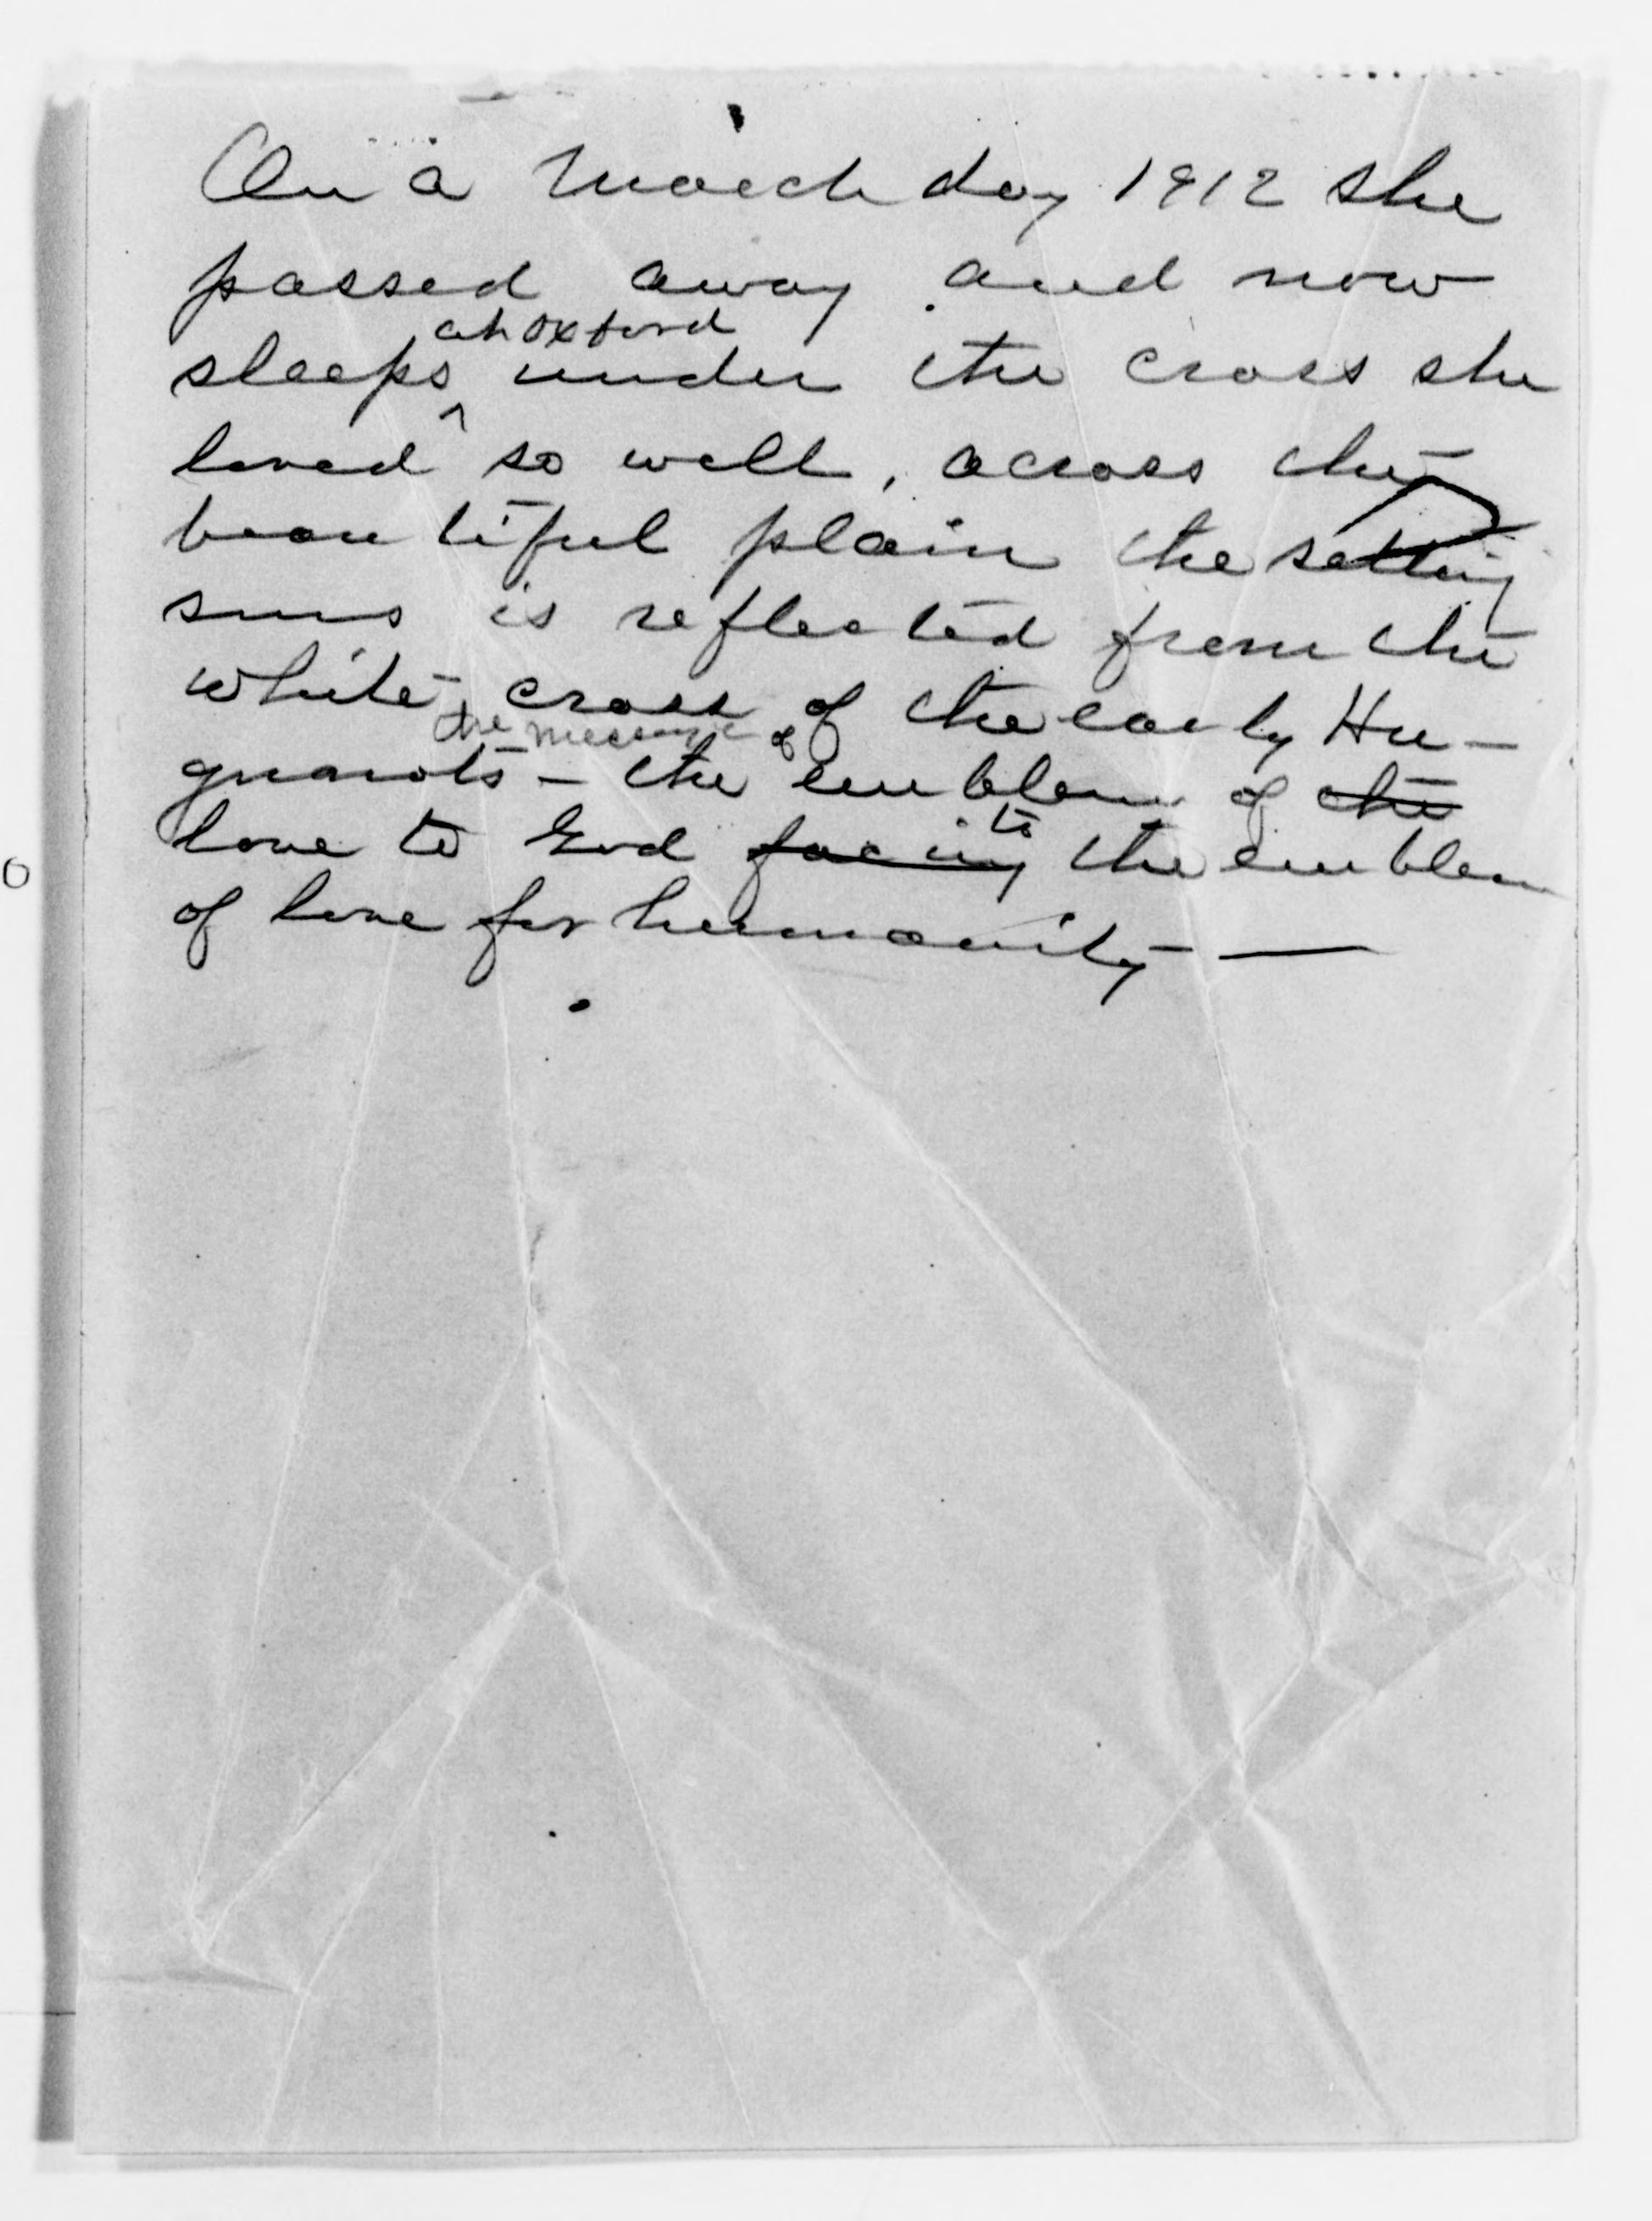 On a March day 1912 she
passed away and now
at Oxford
sleeps ^ under the cross she
loved so well, across the
beautiful plain the setting
suns is reflected from the
white cross of the early Hu-
the message of
guanots - the emblem of the
love to God facing to the emblem
of love for humanity —